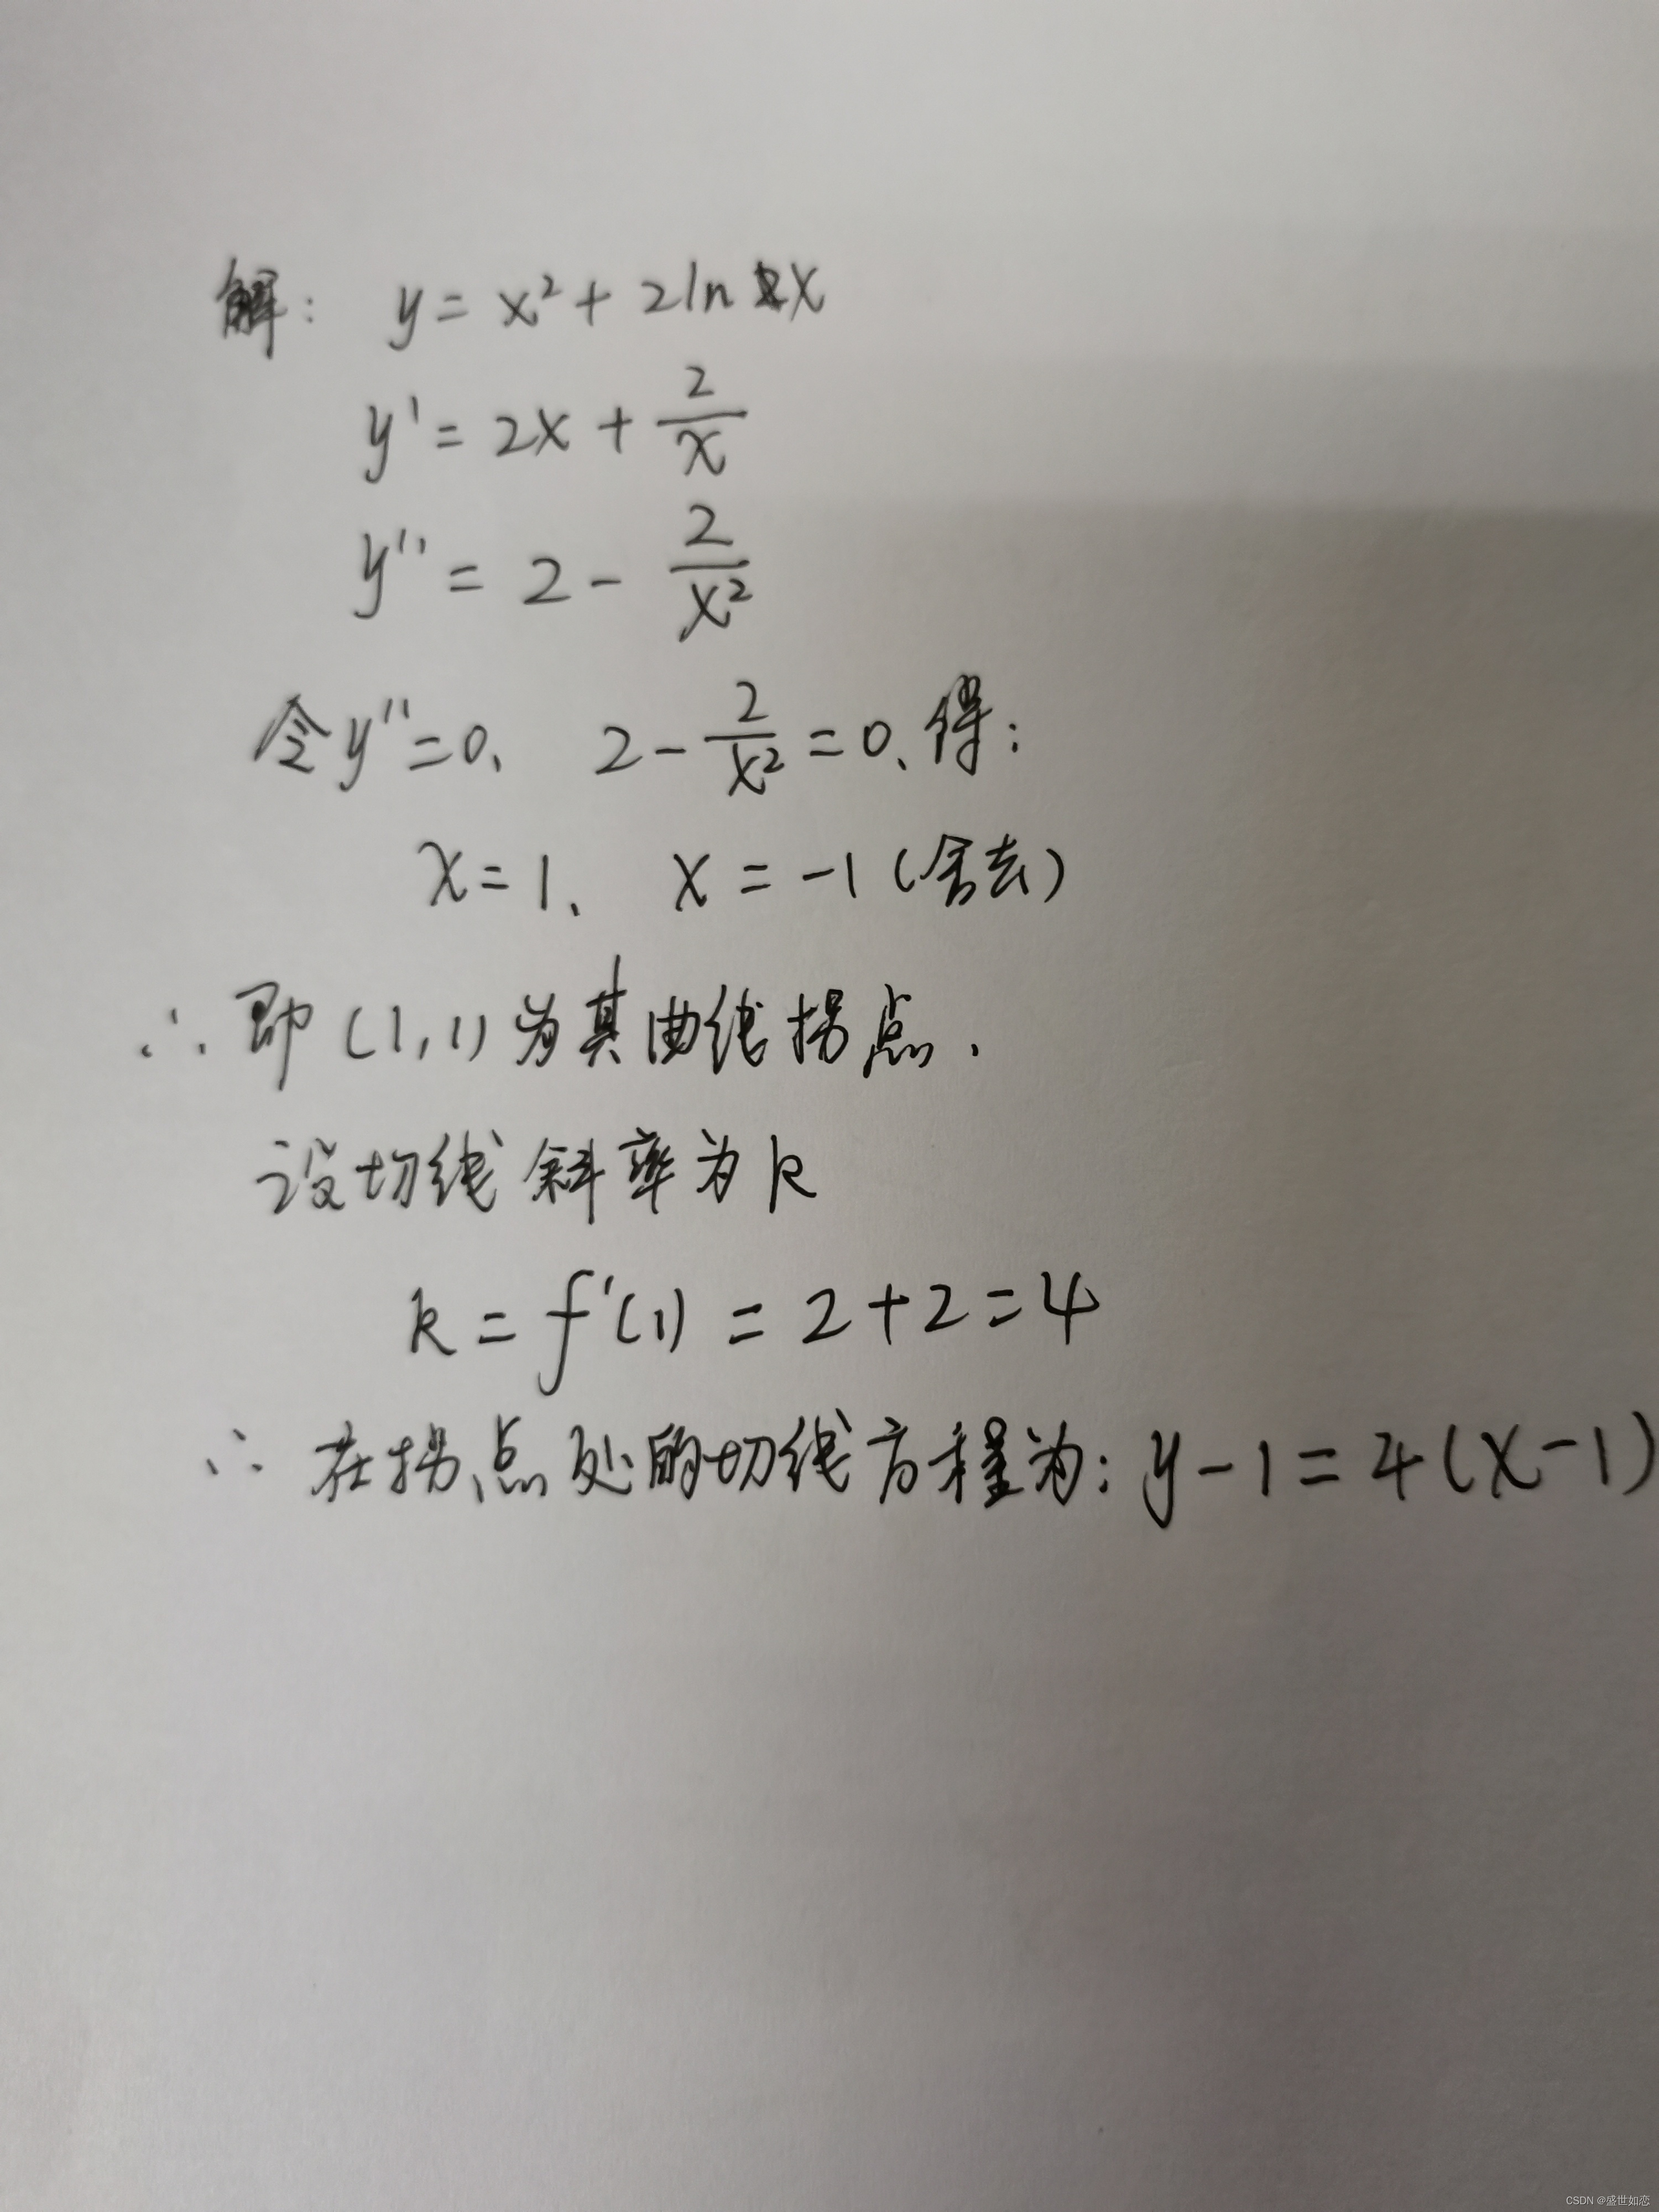 解: y = x² + 2ln x
y' = 2x + 2/x
y'' = 2 - 2/x²
令y''=0、 2 - 2/x² = 0、得:
x = 1、 x = -1 (舍去)
∴ 即 (1,1) 为其曲线拐点、
设切线斜率为k
k = f'(1) = 2+2=4
∴ 在拐点处的切线方程为: y-1=4(x-1)
CSDN @盛世如恋